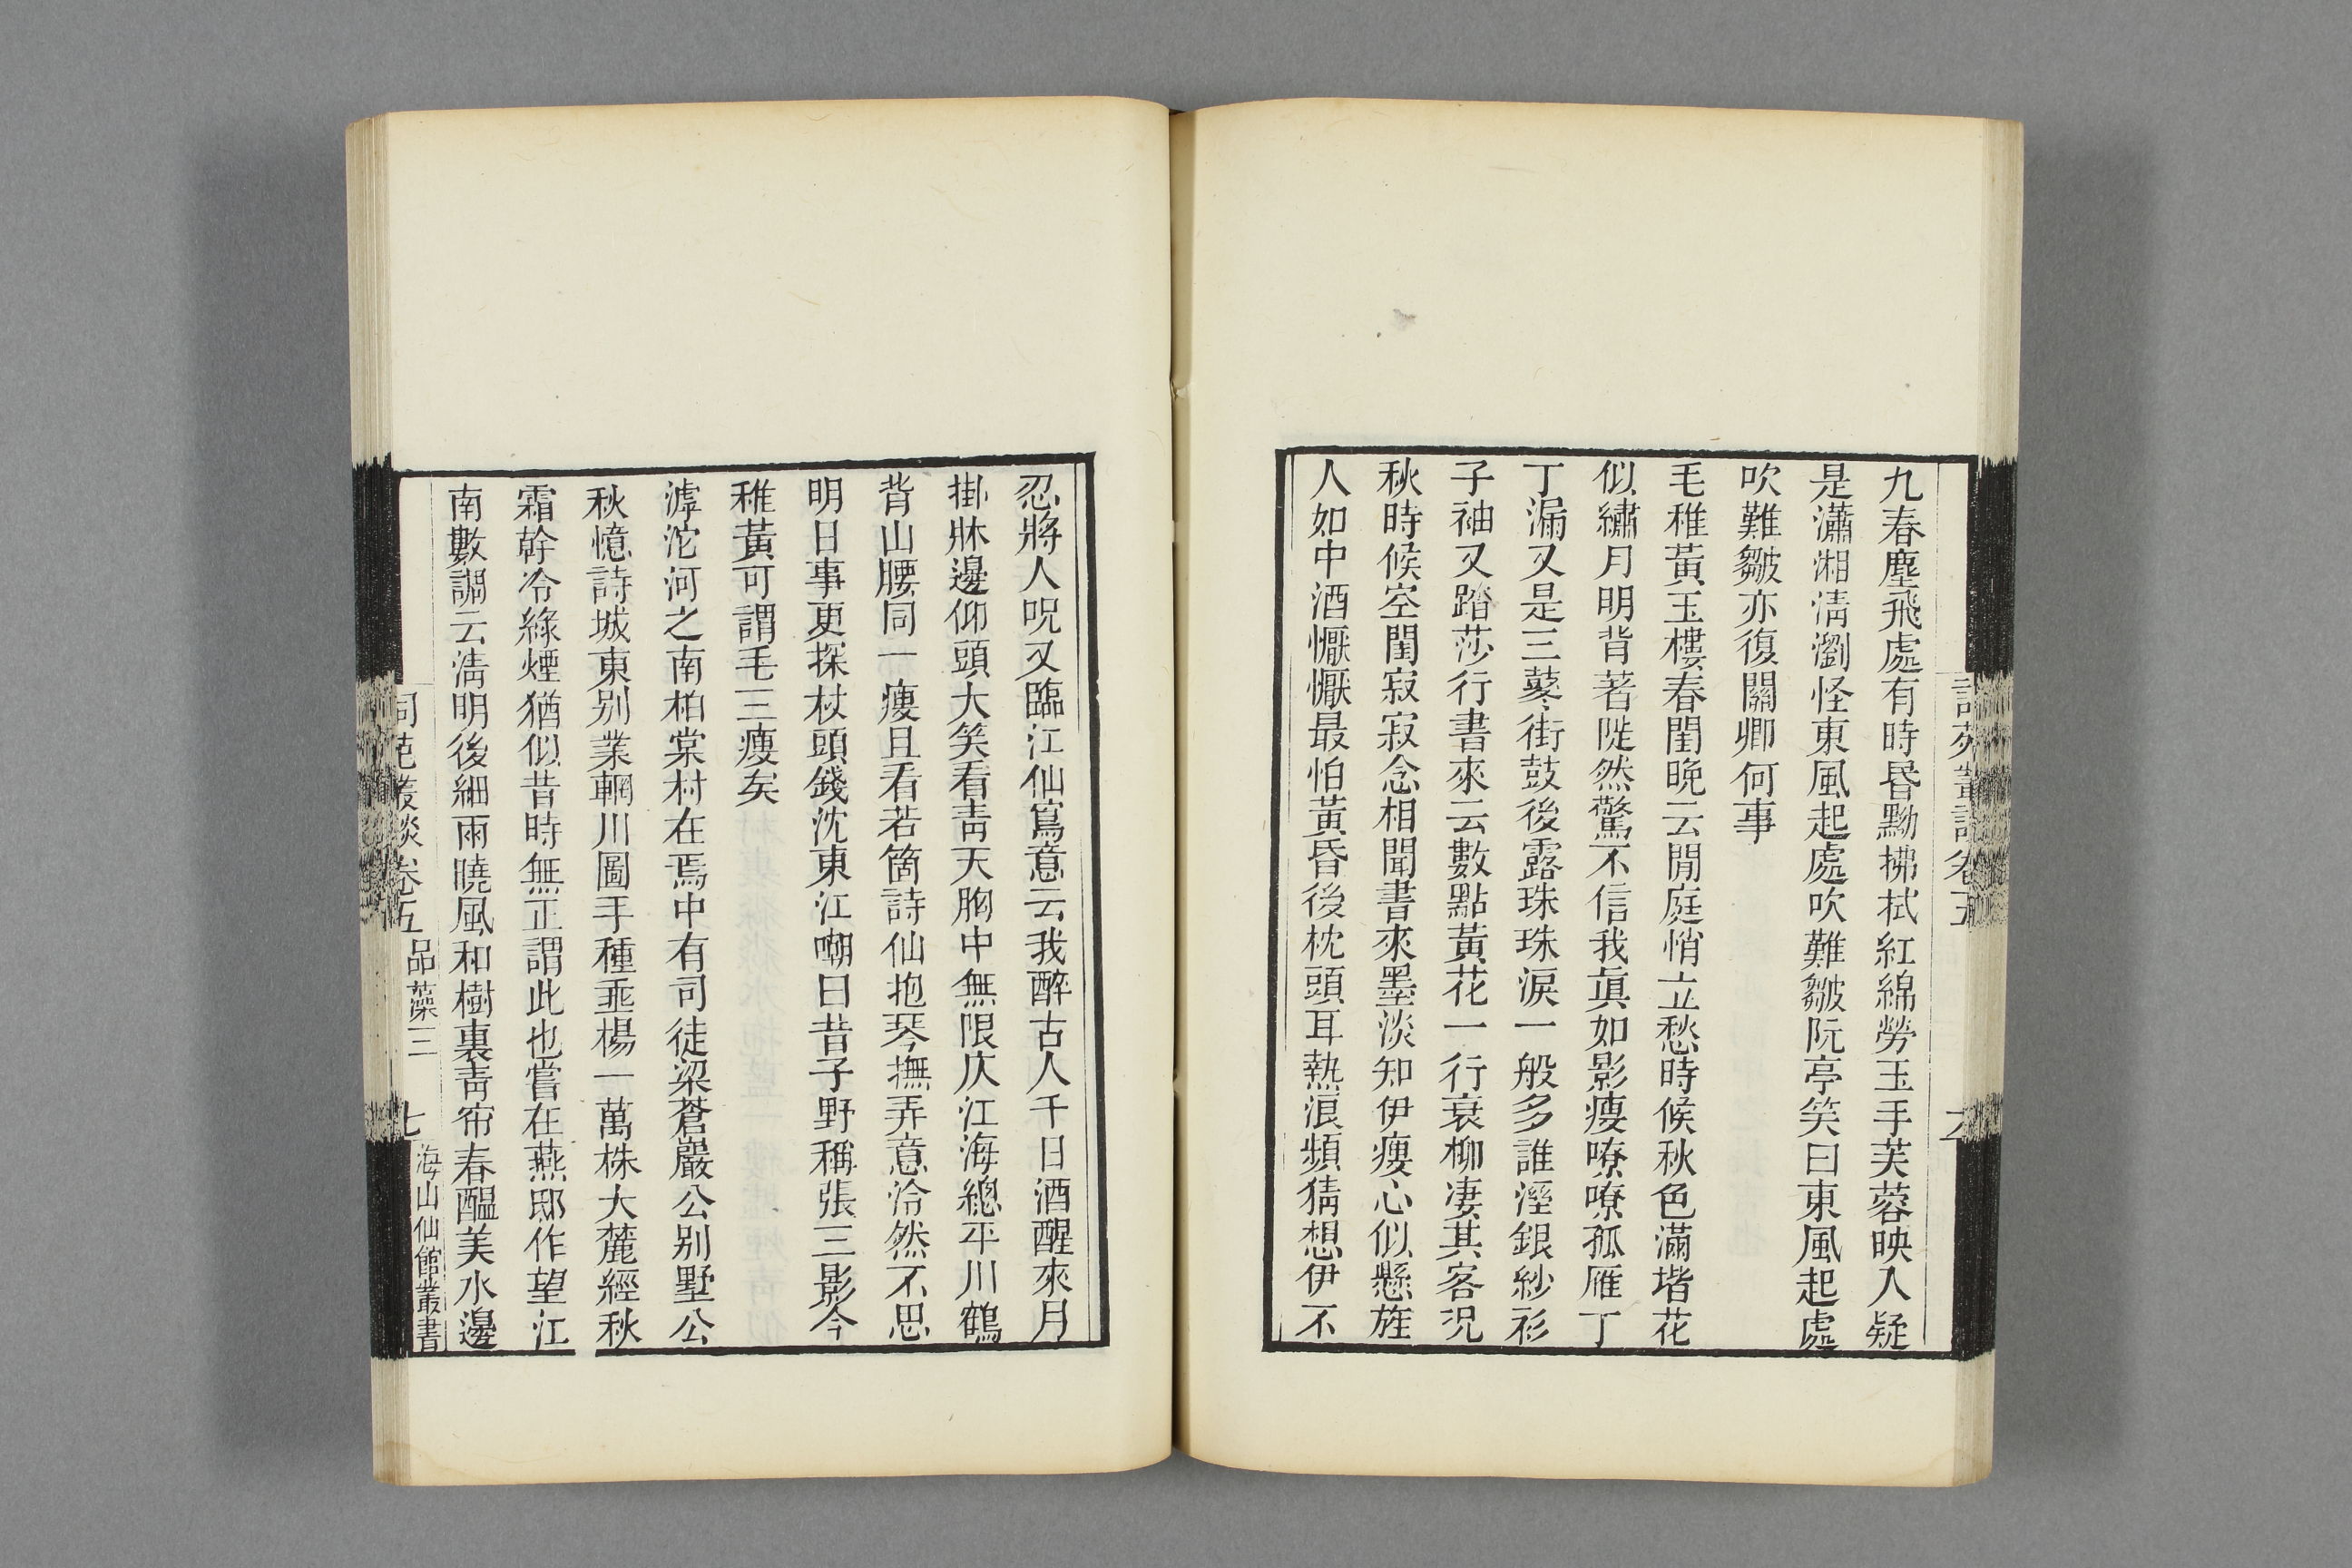 九春塵飛處有時昏黝拂拭紅綿勞玉手芙蓉映人疑
是瀟湘淸瀏怪東風起處吹難皺阮亭笑曰東風起處
吹難皺亦復關卿何事
毛稚黃玉樓春閨晚云閒庭悄立愁時候秋色滿堦花
似繡月明背著陡然驚不信我眞如影瘦嘹嘹孤雁丁
丁漏又是三鼕街鼓後露珠珠淚一般多誰溼銀紗衫
子袖又踏莎行書來云數點黃花一行衰柳淒其客況
秋時候空閨寂寂念相聞書來墨淡知伊瘦心似懸旌
人如中酒懨懨最怕黃昏後枕頭耳熱浪頻猜想伊不
忍將人呪又臨江仙寫意云我醉古人千日酒醒來月
掛牀邊仰頭大笑看靑天胸中無限仄江海總平川鶴
背山腰同一瘦且看若箇詩仙抱琴撫弄意泠然不思
明日事更探杖頭錢沈東江嘲曰昔子野稱張三影今
稚黃可謂毛三瘦矣
滹沱河之南柏棠村在焉中有司徒梁蒼巖公別墅公
秋憶詩城東別業輞川圖手種垂楊一萬株大麓經秋
霜幹冷綠煙猶似昔時無正謂此也嘗在燕邸作望江
南數調云淸明後細雨曉風和樹裏靑帘春醞美水邊
詞苑叢談卷五 品藻三 七 海山仙館叢書